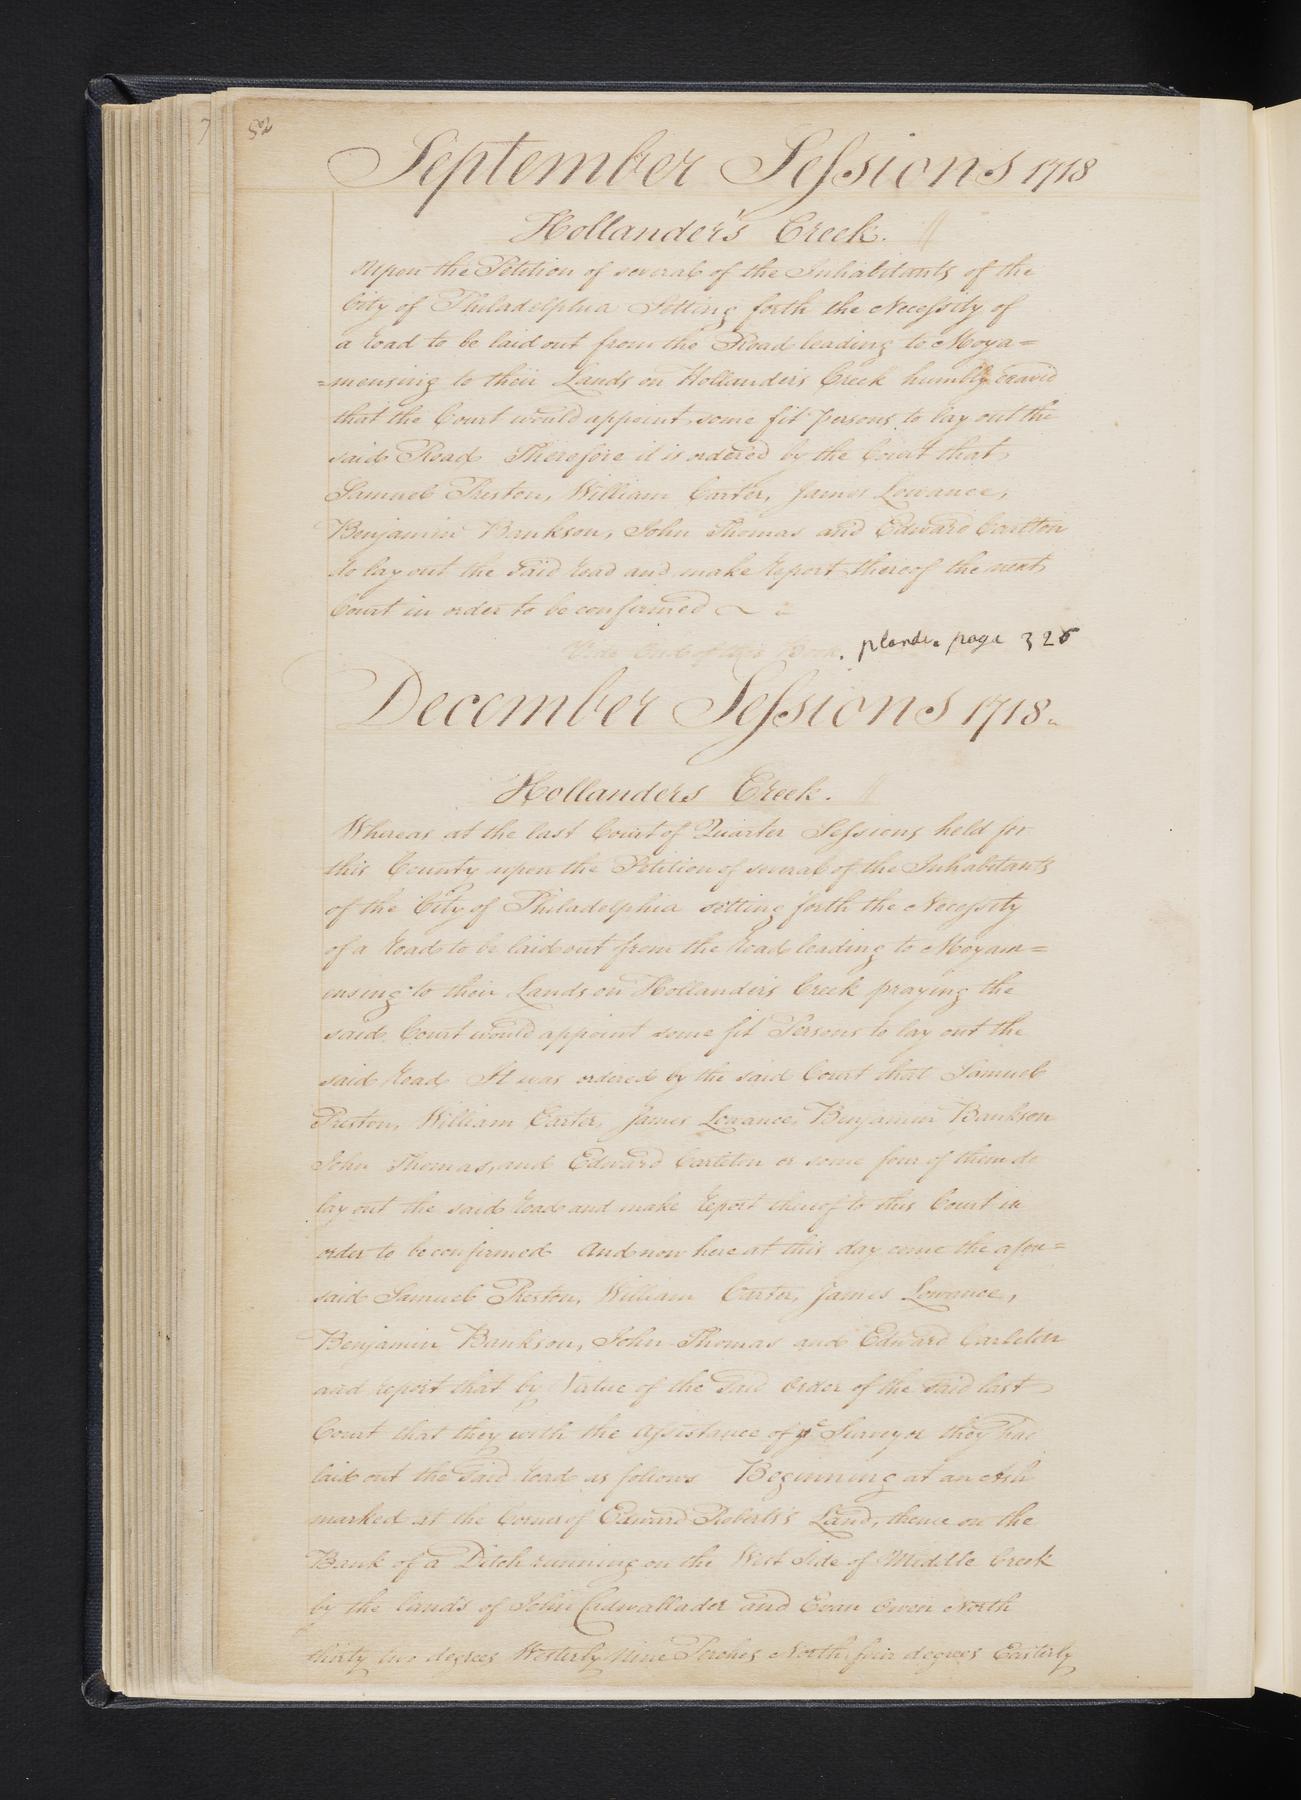 52
September Sessions 1718
Hollander's Creek.
Upon the Petition of several of the Inhabitants of the
City of Philadelphia Setting forth the Necessity of
a road to be laid out from the Road leading to Moya=
=mensing to their Lands on Hollanders Creek humbly craved
that the Court would appoint some fit Persons to lay out the
said Road Therefore it is ordered by the Court that
Samuel Preston, William Carter, James Lowance,
Benjamin Bankson, John Thomas and Edward Carlton
do lay out the said road and make report thereof the next
Court in order to be confirmed
Vide End of this Book. page 326
December Sessions 1718.
Hollanders Creek.
Whereas at the last Court of Quarter Sessions held for
this County upon the Petition of several of the Inhabitants
of the City of Philadelphia setting forth the Necessity
of a road to be laid out from the road leading to Moyam=
ensing to their Lands on Hollander's Creek praying the
said Court would appoint some fit Persons to lay out the
said road It was ordered by the said Court that Samuel
Preston, William Carter, James Lowance, Benjamin Bankson
John Thomas, and Edward Carleton or some four of them do
lay out the said road and make report thereof to this Court in
order to be confirmed And now here at this day come the afore=
said Samuel Preston, William Carter, James Lowance,
Benjamin Bankson, John Thomas and Edward Carleton
and report that by Virtue of the said Order of the said last
Court that they with the Assistance of ye Surveyor they had
laid out the said road as follows Beginning at an Ash
marked at the Corner of Edward Roberts's Land, thence on the
Bank of a Ditch running on the West Side of Middle Creek
by the lands of John Cadwallader and Evan Owen North
thirty two degrees Westerly Nine Perches North four degrees Easterly